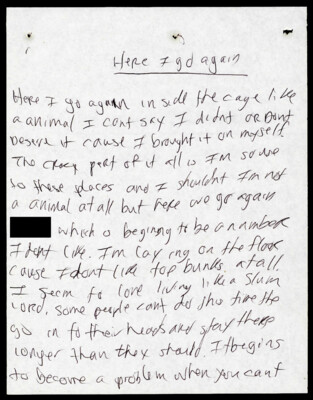 Here I go again
Here I go again in side the cage like
a animal I cant say I didnt or Dont
Deserve it cause I brought it on myself.
The crazy part of it all is I'm so use
to these places and I shouldnt I'm not
a animal at all but here we go again
which is begining to be a number
I dont like. I'm lay ing on the floor
cause I dont like top bunks. at all.
I seem to love living like a slum
lord, some people cant do this time the
go in to their heads and stay there
longer than they should. It begins
to become a problem when you cant